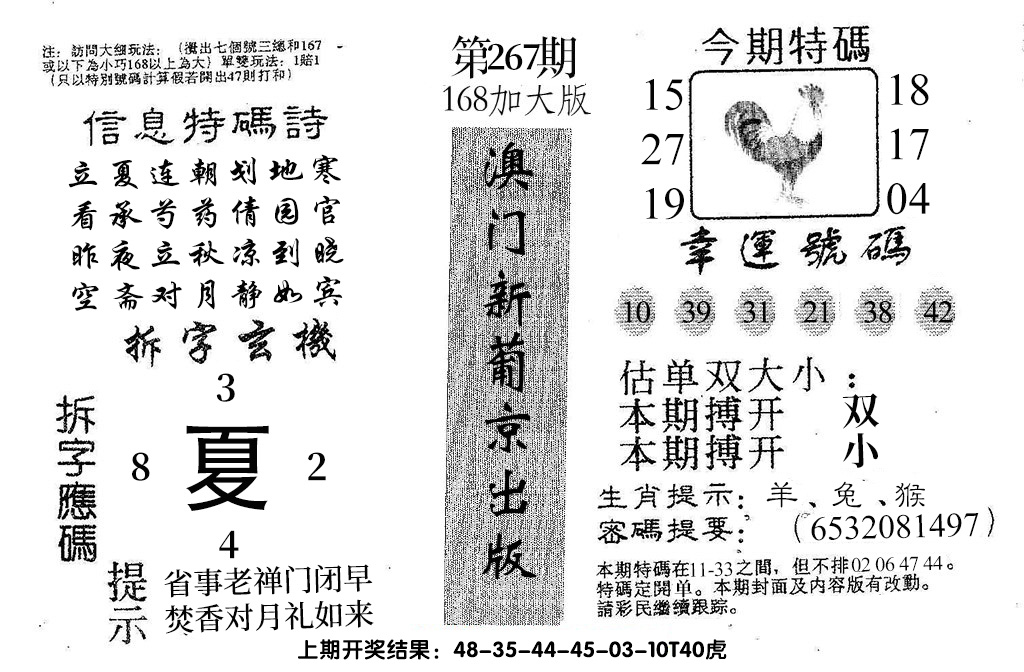 注：訪問大细玩法：（攪出七個號三總和167
或以下為小巧168以上為大）單雙玩法：1賠1
（只以特別號碼計算假若開出47則打和）
信息特碼詩
立夏连朝划地寒
看承芍药倩园官
昨夜立秋凉到晓
空斋对月静如宾
拆字玄機
拆字應碼
3
8 夏 2
4
提示
省事老禅门闭早
焚香对月礼如来
第267期
168加大版
澳门新葡京出版
今期特碼
15 18
27 17
19 04
幸運號碼
10 39 31 21 38 42
估单双大小：
本期搏开 双
本期搏开 小
生肖提示：羊、兔、猴
密碼提要：（6532081497）
本期特碼在11-33之間，但不排02 06 47 44。
特碼定開单。本期封面及内容版有改動。
請彩民繼續跟踪。
上期开奖结果：48-35-44-45-03-10T40虎